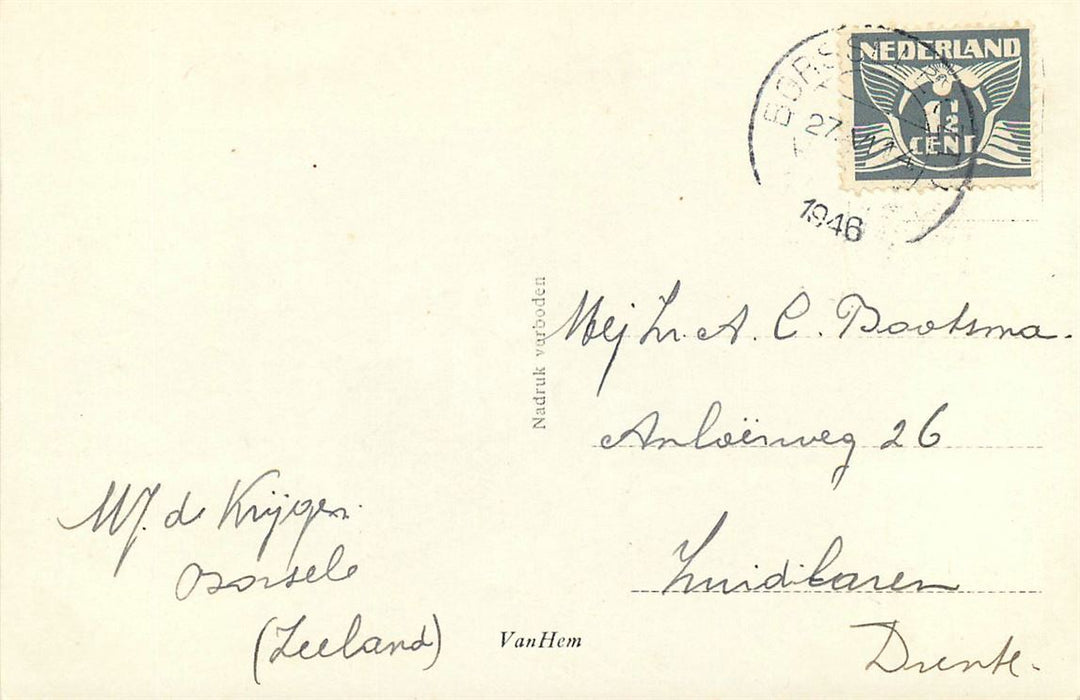 NEDERLAND
1½
CENT
1946
Nadruk verboden
Mej hr. A. C. Bootsma.
Anloërweg 26
Zuidlaren
Drente.
MJ. de Krijger.
Borsele
(Zeeland)
VanHem